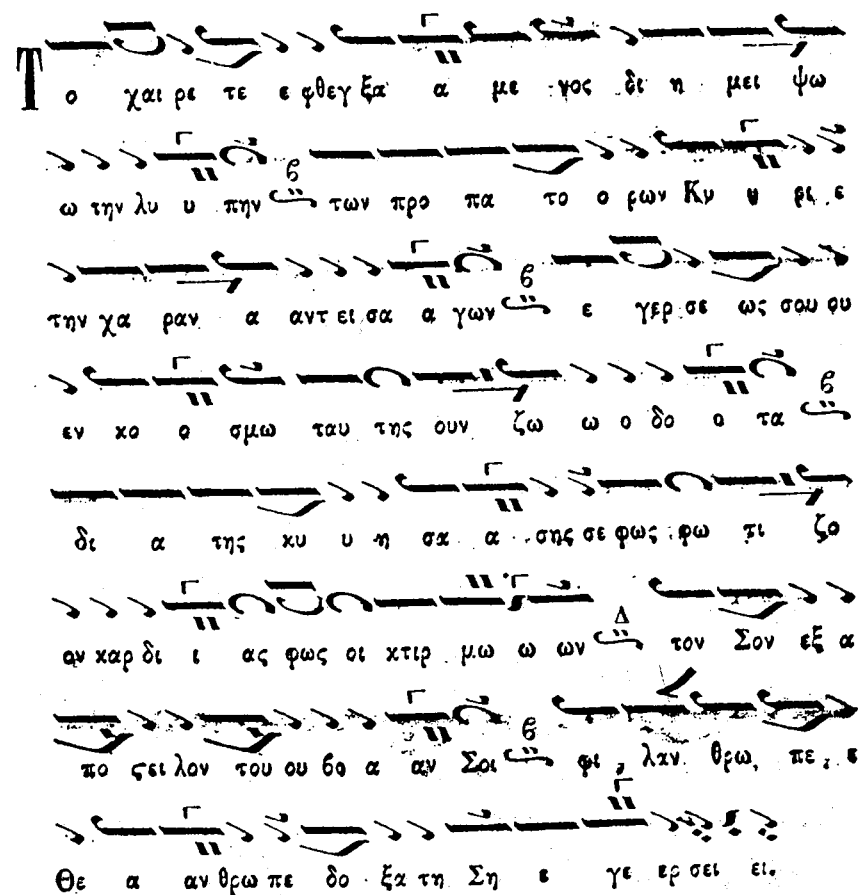 Το χαι ρε τε ε φθεγ ξα α με νος δι η μει ψω
ω την λυ υ πην ϐ των προ πα το ο ρων Κυ υ ρι ε
την χα ραν α αντ ει σα α γων ϐ ε γερ σε ως σου ου
εν κο ο σμω ταυ της ουν ζω ω ο δο ο τα ϐ
δι α της κυ υ η σα α σης σε φως φω τι ζο
ον καρ δι ι ας φως οι κτιρ μω ω ων Δ τον Σον εξ α
πο ςει λον του ου ϐο α αν Σοι ϐ φι λαν θρω πε ε
Θε α αν θρω πε δο ξα τη Ση ε γε ερ σει ει.